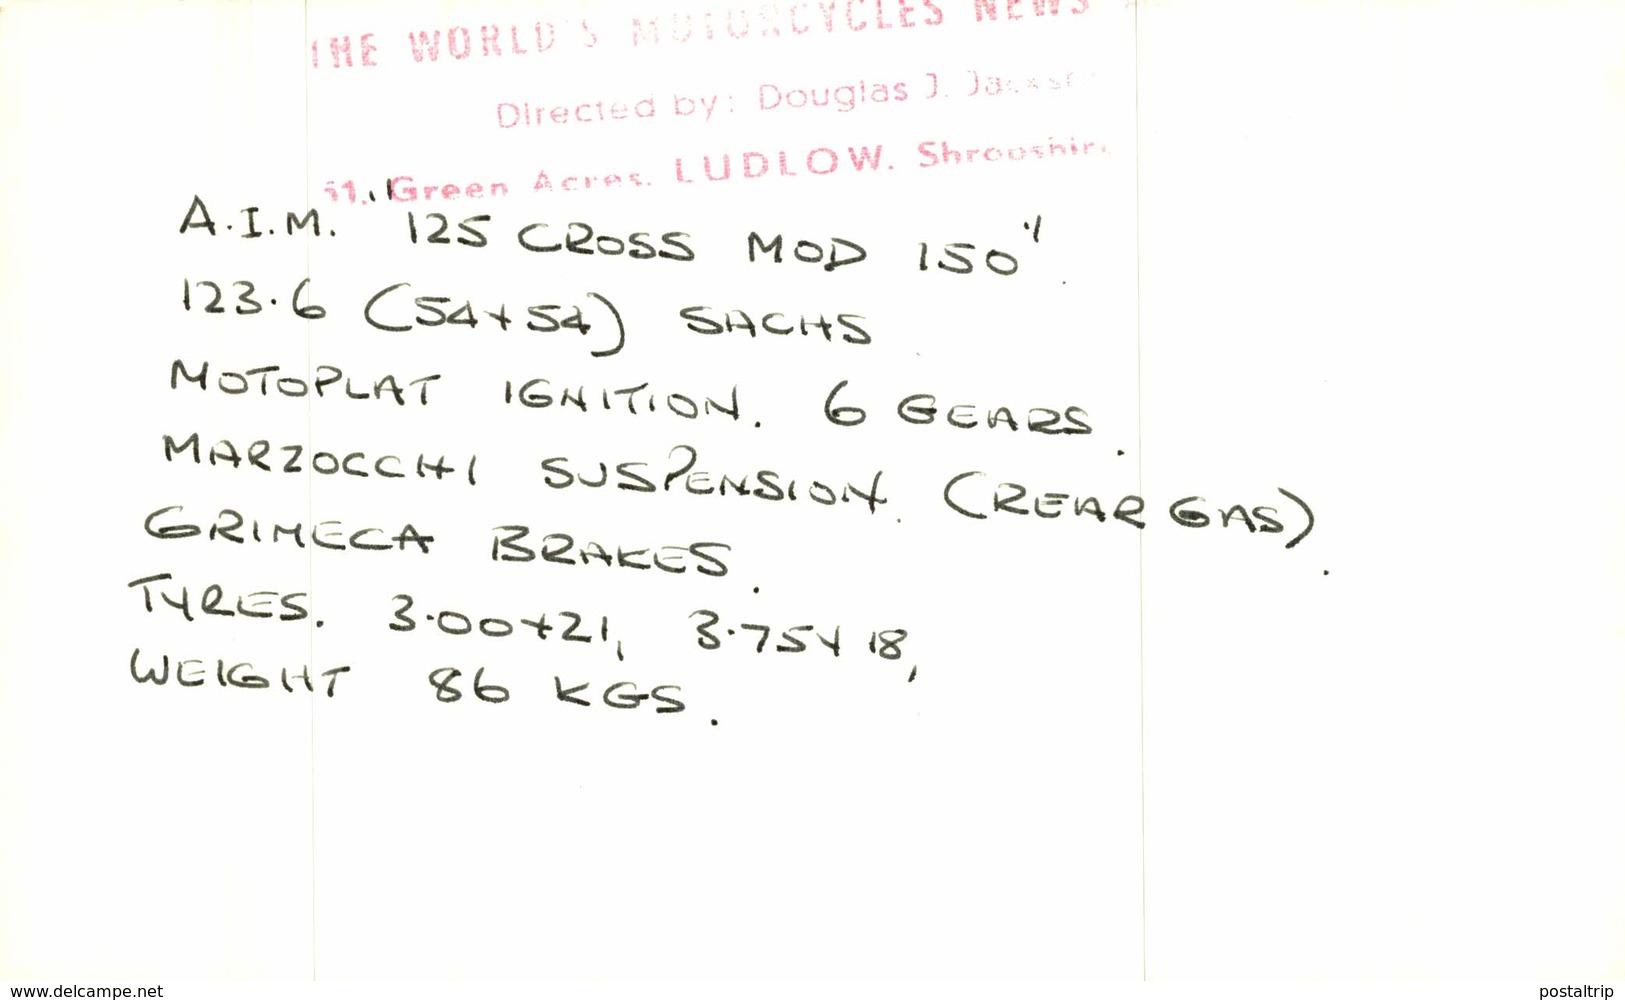 THE WORLD'S MOTORCYCLES NEWS
Directed by: Douglas J.
51. Green Acres. LUDLOW. Shropshire
A.I.M. 125 CROSS MOD 150"
123.6 (54+54) SACHS
MOTOPLAT IGNITION. 6 GEARS.
MARZOCCHI SUSPENSION. (REAR GAS).
GRIMECA BRAKES.
TYRES. 3.00+21, 3.75+18,
WEIGHT 86 KGS.
www.delcampe.net
postaltrip